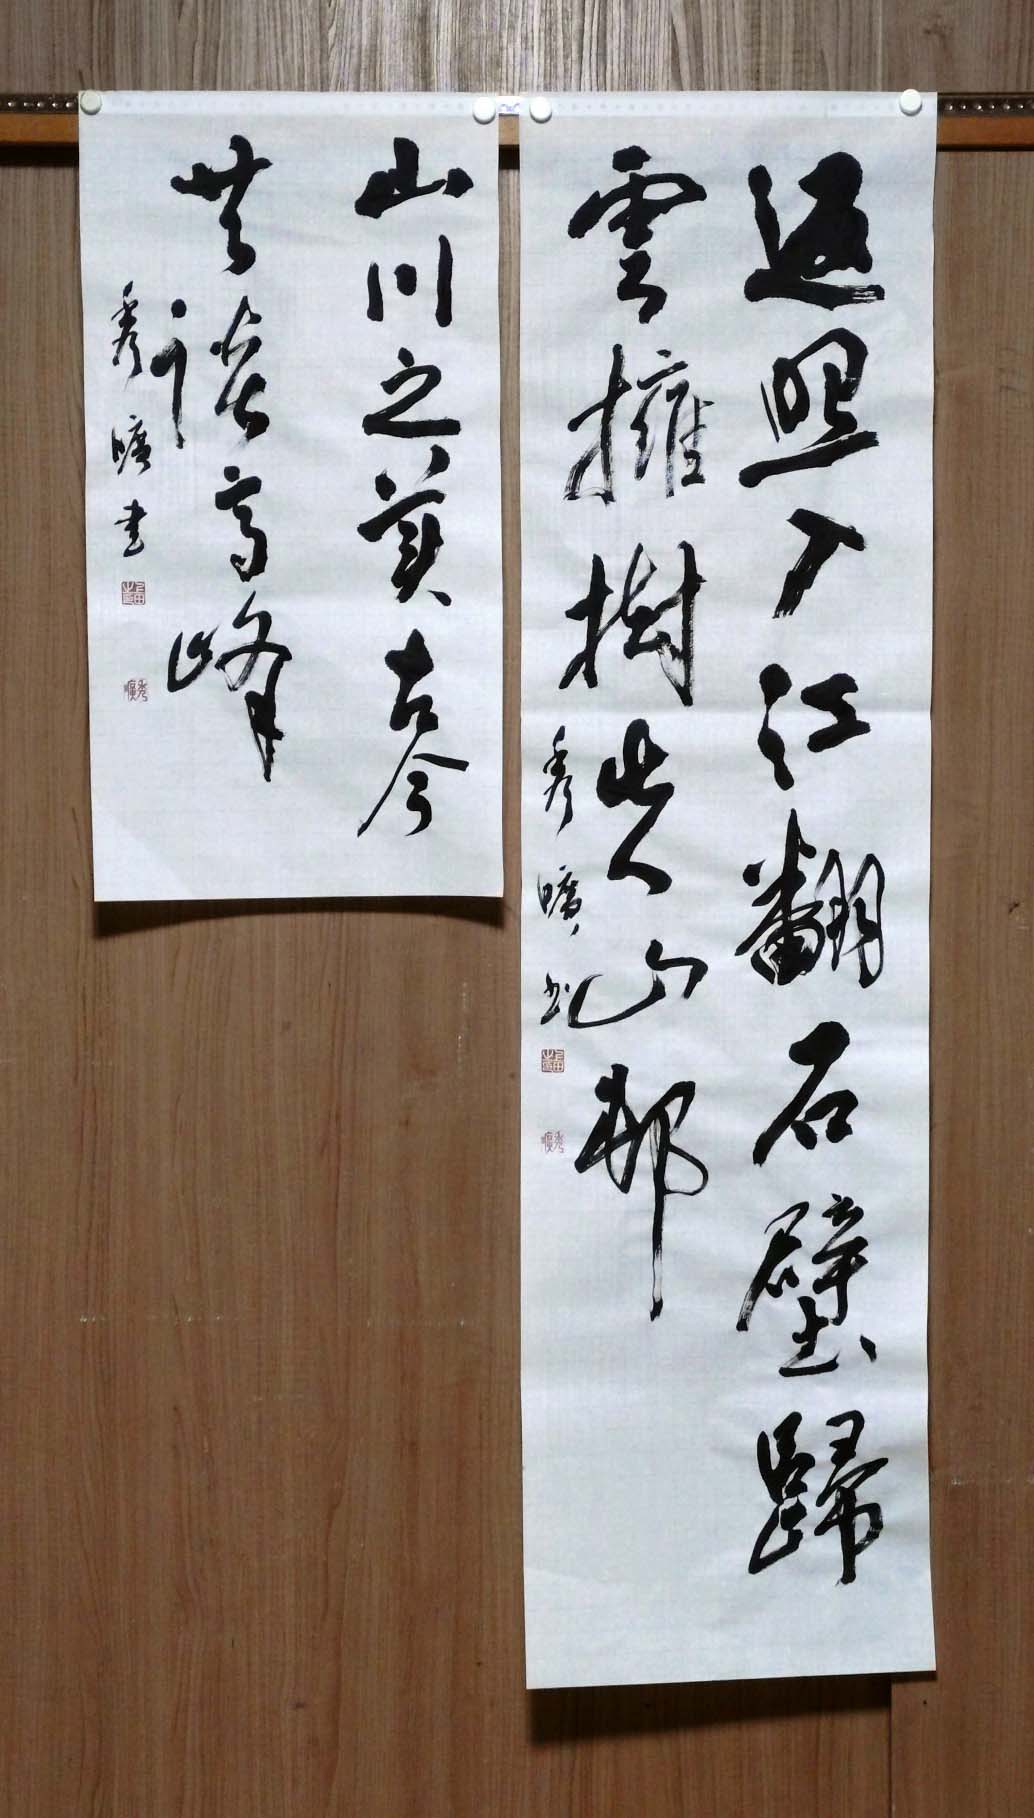 返照入江翻石壁歸
雲擁樹失山邨
秀曠書
山川之美古今
共談高峰
秀曠書